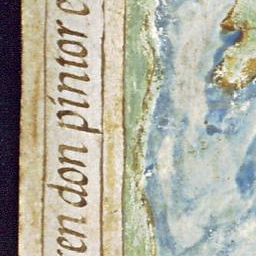 ren don pintor e